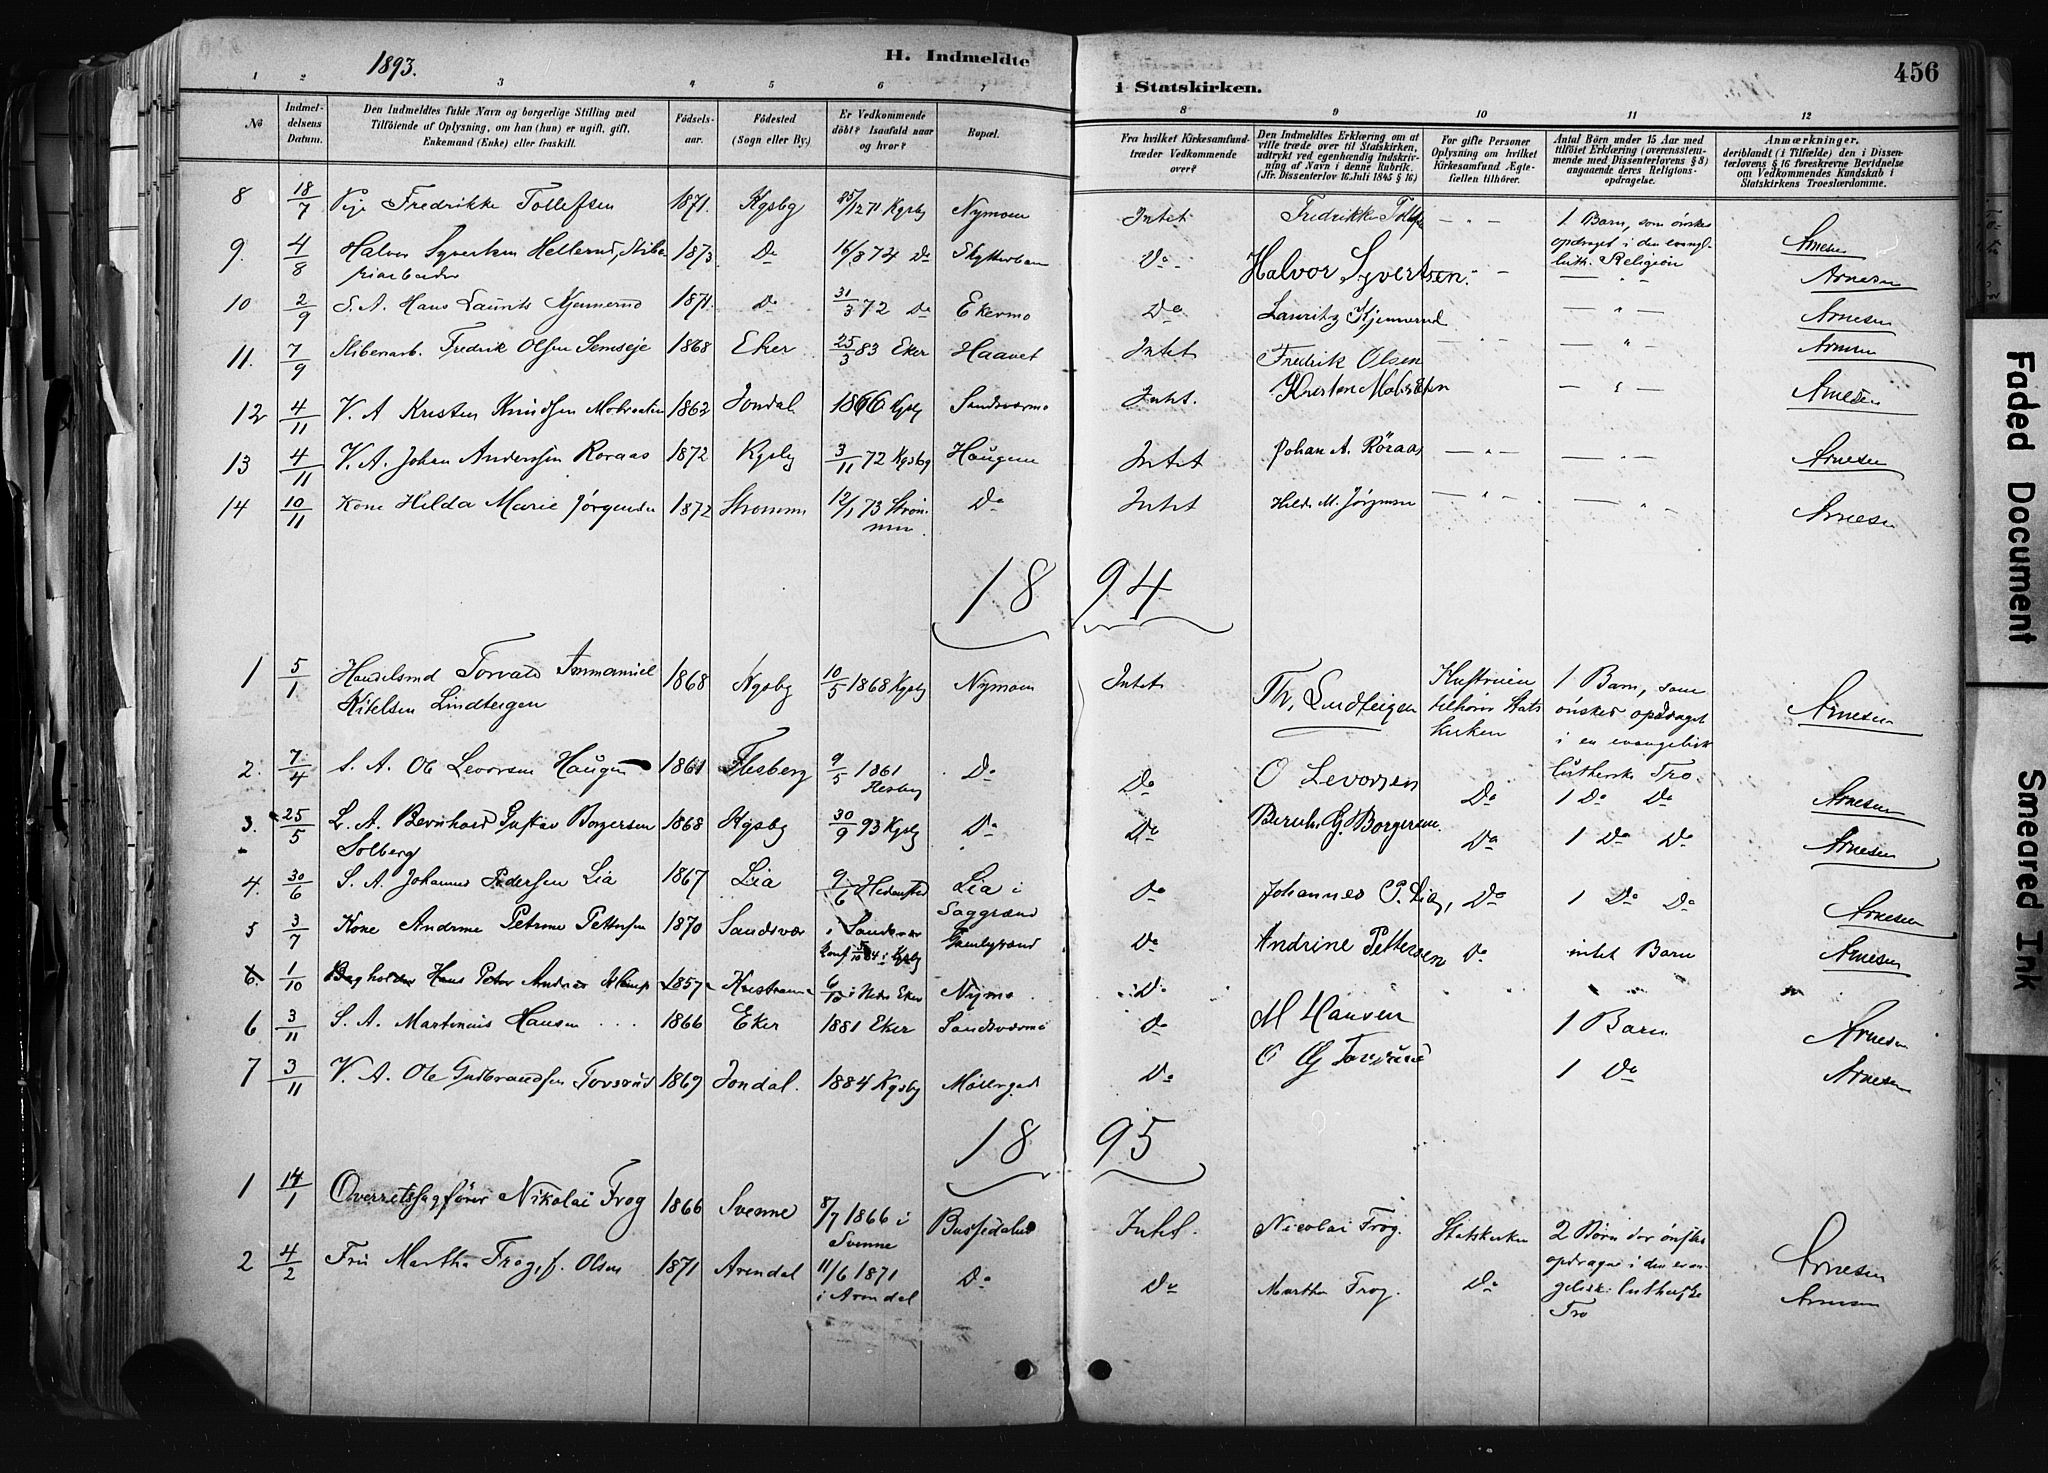 1893.
H. Indmeldte
i Statskirken.
456
1 2 3 4 5 6 7 8 9 10 11 12
No
Indmel-
delsens
Datum.
Den Indmeldtes fulde Navn og borgerlige Stilling med
Tilføiende af Oplysning, om han (hun) er ugift, gift,
Enkemand (Enke) eller fraskilt.
Fødsels-
aar.
Fødested
(Sogn eller By.)
Er Vedkommende
döbt? Isaafald naar
og hvor?
Bopæl.
Fra hvilket Kirkesamfund
træder Vedkommende
over?
Den Indmeldtes Erklæring om at
ville træde over til Statskirken,
udtrykt ved egenhændig Indskriv-
ning af Navn i denne Rubrik.
(Jfr. Dissenterlov 16. Juli 1845 § 16)
For gifte Personer
Oplysning om hvilket
Kirkesamfund Ægte-
fællen tilhører.
Antal Börn under 15 Aar med
tilföiet Erklæring (overensstem-
mende med Dissenterlovens § 8)
angaaende deres Religions-
opdragelse.
Anmærkninger,
deriblandt (i Tilfælde) den i Dissen-
terlovens § 16 foreskrevne Bevidnelse
om Vedkommendes Kundskab i
Statskirkens Troeslærdomme.
8 18/7 Pige Fredrikke Tollefsen 1871. Kgsbg 25/12 71 Kgsbg Nymoen Intet Fredrikke Tollefs - " - 1 Barn, som ønskes
opdraget i den evangl.
luth. Religion Arnesen
9. 4/8 Halvor Syvertsen Hellerud, Sliberiarbeider 1873. Do 16/8 74 Do Skytterban Do Halvor Syvertsen. - " - Arnesen
10 2/9 S. A. Hans Laurits Kjennerud 1871. Do 31/3 72 Do Ekermo Do Lauritz Kjennerud - " - Arnesen
11. 7/9 Slibenarb. Fredrik Olsen Semseje 1868 Eker 25/3 83 Eker Haavet Intet Fredrik Olsen - " - - " - Arnesen
12 4/11 V. A Kristen Knudsen 1862 Jondal 1866 Kgsbg Sandsværmo Intet. Kristen - " - Arnesen
13 4/11 V. A. Johan Andersen Roraas 1872 Kgsbg 3/11 72 Kgsbg Haugen Intet Johan A. Röraas - " - - " - Arnesen
14 10/11 Kone Hilda Marie Jørgensen 1872 Strømm 12/1 73 Strømmen Do Intet Hilda M. Jørgensen - " - - " - Arnesen
1894
1 5/1 Handelsmd Torvald Immanuel
Kitelsen Lindteigen 1868 Kgsbg 10/5 1868 Kgsbg Nymoen Intet Th. Lindteigen Hustruen
tilhører Stats
kirken 1 Barn, som
ønskes opdraget
i en evangelisk
luthersk Tro. Arnesen
2. 7/4 S. A. Ole Levorsen Haugen 1861 Flesberg 9/5 1861
Flesberg Do Do O Levorsen Do 1 Do Do Arnesen
3. 25/5 L. A. Bernhard Gustav Borgersen
Solberg 1868 Kgsbg 30/9 93 Kgsbg Do Do Bernh. G. Borgersen. Do 1 Do Do Arnesen
4. 30/6 S. A. Johannes Pedersen Lia 1867 Lia 9/6 Hedensted Lia i
Saggrænd Do Johannes P. Lia, Do 1 Do Do Arnesen
5 3/7 Kone Andrine Petrine Pettersen 1870 Sandsvær i Sandsvær
konf 5/10 84 i Kgsbg Do Andrine Pettersen Do intet Barn Arnesen
6. 1/10 Bogholder Hans Peter Andreas 1857 Kristiania 6/10 i Nedre Eker Nymo Do " " "
6 3/11 S. A. Martinius Hansen 1866 Eker 1881 Eker Sandsværmo Do M Hansen 1 Barn Arnesen
7 3/11 V. A. Ole Gudbrandsen Torsrud 1869 Jondal. 1884 Kgsbg Møllergad Do O G Torsrud 1 Do Arnesen
1895
1 14/1 Overretssagfører Nikolai Frog 1866 Svenne 8/7 1866 i
Svenne Bussedalen Intet. Nicolai Frog. Statskirken 2 Børn der ønskes
opdragne i den evan-
gelisk: lutherske
Tro Arnesen
2 4/2 Fru Martha Frog, f. Olsen 1871 Arendal 11/6 1871
i Arendal Do Do Martha Frog. Do Arnesen
Faded Document
Smeared Ink